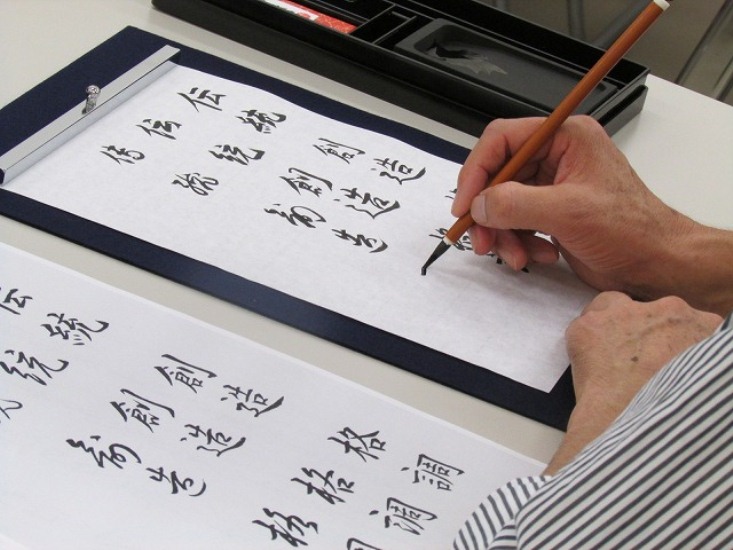 伝統創造
伝統創造格
伝統創造
伝統創造格調
統創造格調
創造格